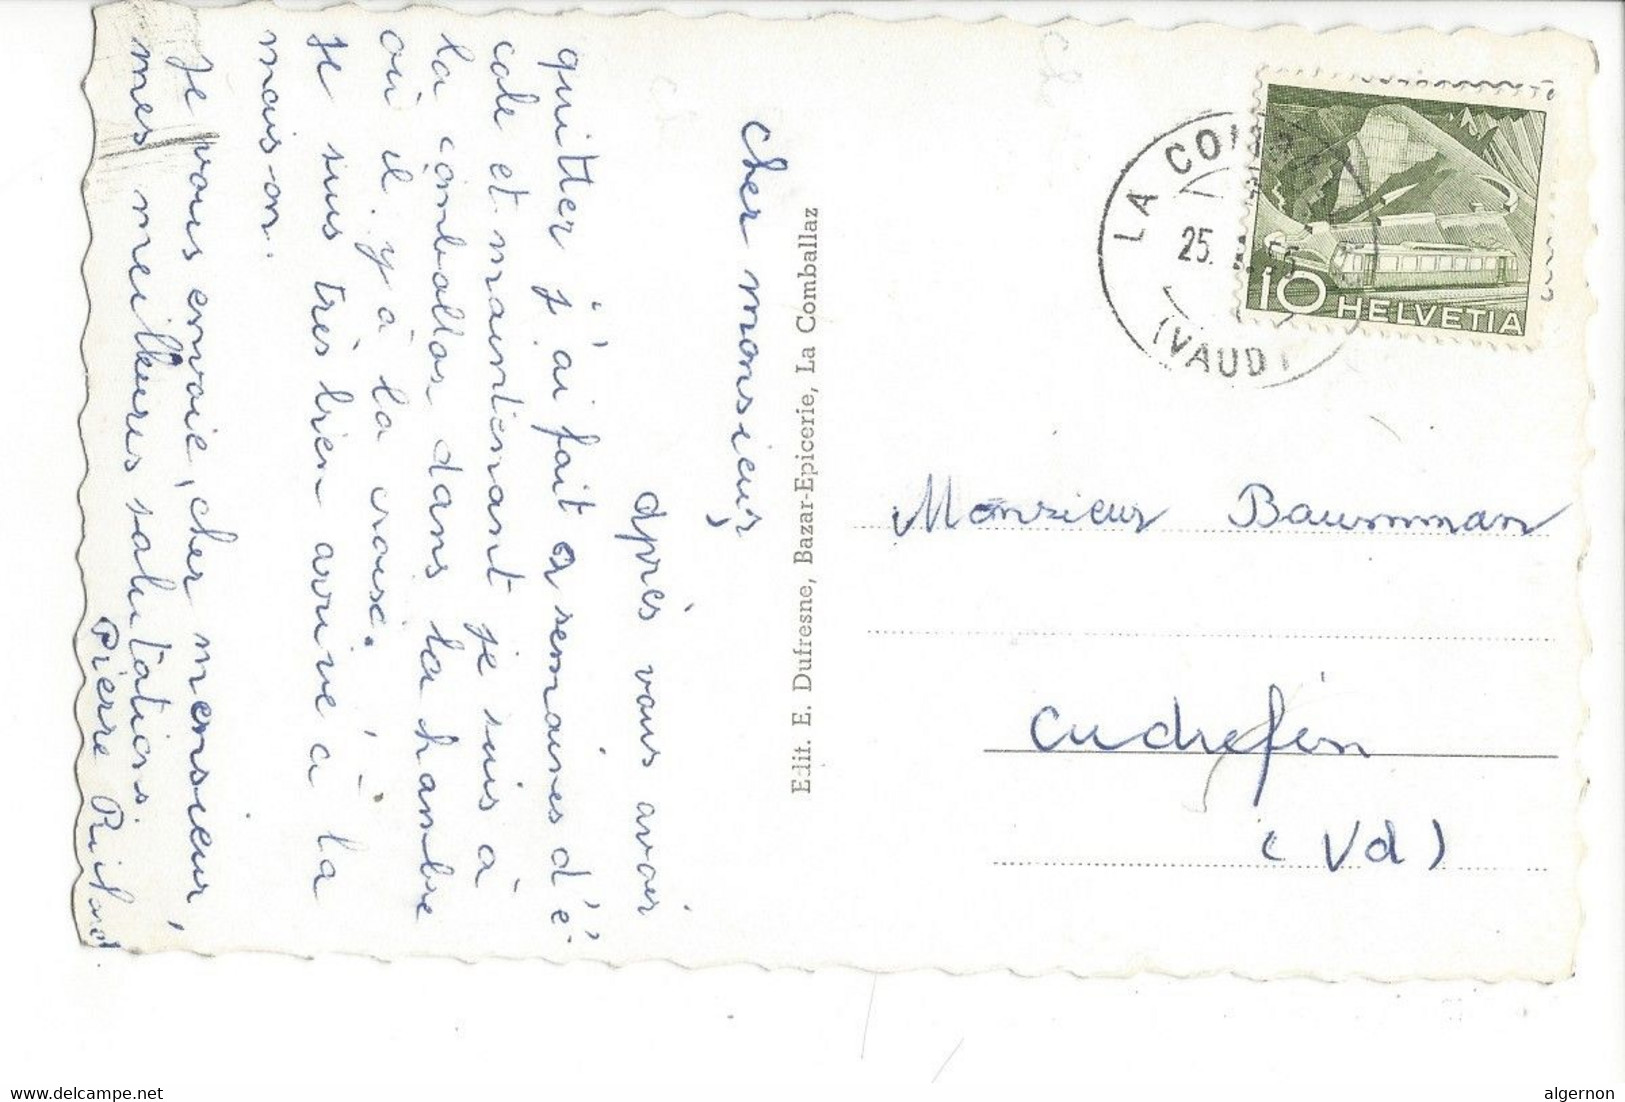 cher monsieur,
après vous avoir
quitter j'ai fait 2 semaines d'é-
cole et maintenant je suis à
la comballaz dans la hambre
où il y à la crousc.
je suis très bien arrivé à la
mais-on.
Je vous envoie, cher mensieur,
mes meilleures salutations.
Pierre
Edit. E. Dufresne, Bazar-Epicerie, La Comballaz
LA
25.
(VAUD)
10 HELVETIA
Monsieur Baummann
Cudrefin
(Vd)
algernon
www.delcampe.net